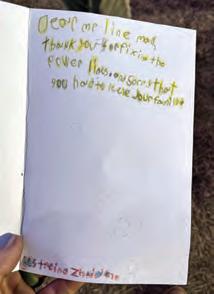 Dear mr line man
thank you for fixing the
power lines. I'm sorry that
you had to leave your family